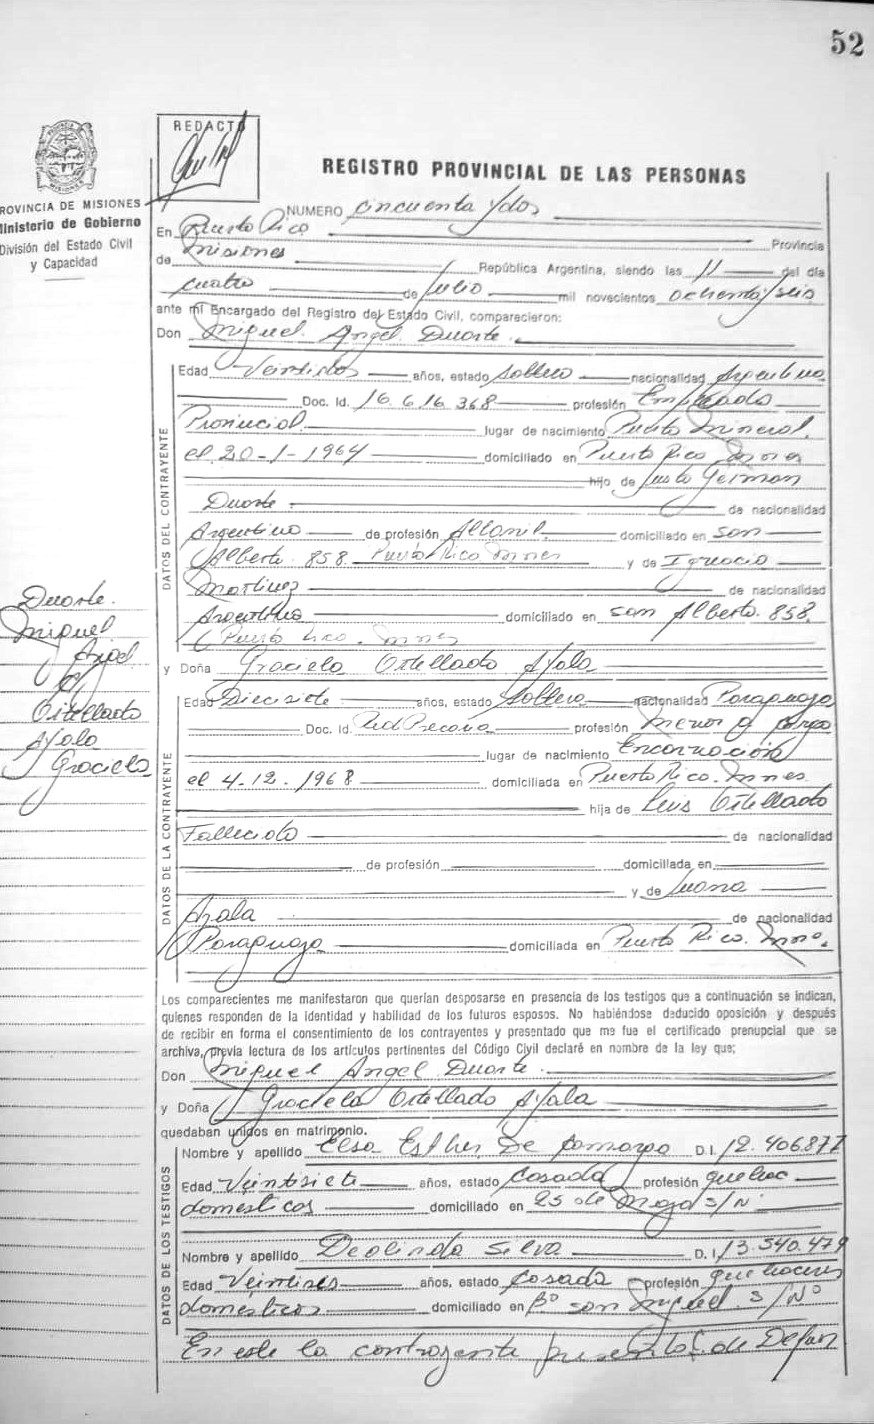 52
REDACTÓ
REGISTRO PROVINCIAL DE LAS PERSONAS
PROVINCIA DE MISIONES
Ministerio de Gobierno
División del Estado Civil
y Capacidad
NUMERO cincuenta y dos
En Puerto Rico Provincia
de Misiones República Argentina, siendo las 11 del día
cuatro de Julio mil novecientos ochenta y seis
ante mi Encargado del Registro del Estado Civil, comparecieron:
Don Miguel Angel Duarte
DATOS DEL CONTRAYENTE
Edad Veintidos años, estado soltero nacionalidad Argentina
Doc. Id. 16.616.368 profesión Empleado
Provincial lugar de nacimiento Puerto Mineral.
el 20-1-1964 domiciliado en Puerto Rico Mnes
hijo de Justo German
Duarte de nacionalidad
Argentino de profesión Albañil domiciliado en San
Alberto 858 Puerto Rico Mnes y de Ignacia
Martinez de nacionalidad
Argentina domiciliado en San Alberto 858.
Puerto Rico. Mnes
Duarte
Miguel
Angel
y
Ortellado
Ayala
Graciela
y Doña Graciela Ortellado Ayala
DATOS DE LA CONTRAYENTE
Edad Diecisiete años, estado soltera nacionalidad Paraguaya
Doc. Id. Rad Precaria profesión Menor a Argo
lugar de nacimiento Encarnación
el 4-12-1968 domiciliada en Puerto Rico. Mnes
hija de Luis Ortellado
Fallecido de nacionalidad
de profesión domiciliada en
y de Juana
Ayala de nacionalidad
Paraguaya domiciliada en Puerto Rico. Mnes.
Los comparecientes me manifestaron que querían desposarse en presencia de los testigos que a continuación se indican,
quienes responden de la identidad y habilidad de los futuros esposos. No habiéndose deducido oposición y después
de recibir en forma el consentimiento de los contrayentes y presentado que me fue el certificado prenupcial que se
archiva, previa lectura de los artículos pertinentes del Código Civil declaré en nombre de la ley que;
Don Miguel Angel Duarte
y Doña Graciela Ortellado Ayala
quedaban unidos en matrimonio.
DATOS DE LOS TESTIGOS
Nombre y apellido Elsa Esther De Camargo D.I. 12.406.877
Edad Veintisiete años, estado casada profesión quehac
domesticos domiciliado en 25 de Mayo S/N
Nombre y apellido Deolinda Silva D.I. 13.540.479
Edad Veintiseis años, estado casada profesión quehaceres
domésticos domiciliado en Bº San Miguel S/Nº
En este la contrayente presenta C. de Defun